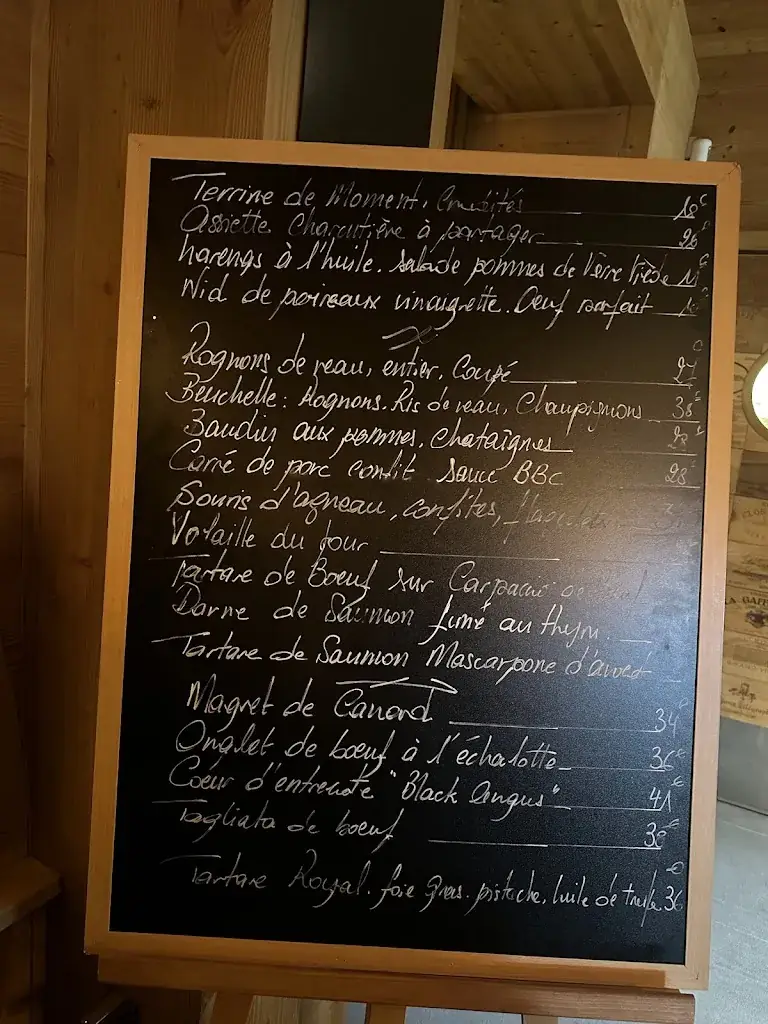 Terrine de Moment. Crudités 18€
Assiette Charcutière à partager 26€
harengs à l'huile. salade pommes de terre tiède
Nid de poireaux vinaigrette. Oeuf parfait
Rognons de veau, entier, Coupé
Beuchelle: Rognons. Ris de veau, Champignons 38€
Boudin aux pommes. Chataîgnes 28€
Carré de porc confit sauce BBC 28€
Souris d'agneau, confites, flageolets
Volaille du jour
Tartare de Boeuf sur Carpaccio de
Darne de Saumon fumé au thym.
Tartare de Saumon Mascarpone d'aneth
Magret de Canard 34€
Onglet de boeuf à l'échalotte 36€
Coeur d'entrecote "Black Angus" 41€
Tagliata de boeuf 38€
Tartare Royal. foie gras. pistache, huile de truffe 36€